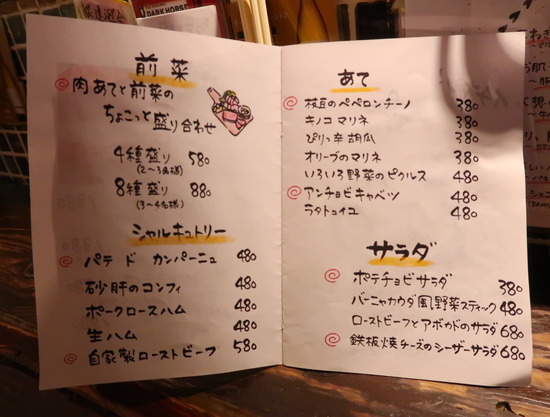 DARK HORSE
前菜
肉あてと前菜の
ちょこっと盛り合わせ
4種盛り 580
(2〜3名様)
8種盛り 880
(3〜4名様)
シャルキュトリー
パテ ド カンパーニュ 480
砂肝のコンフィ 480
ポークロースハム 480
生ハム 480
自家製ローストビーフ 580
あて
枝豆のペペロンチーノ 380
キノコマリネ 380
ぴりっ辛胡瓜 380
オリーブのマリネ 380
いろいろ野菜のピクルス 480
アンチョビキャベツ 480
ラタトゥイユ 480
サラダ
ポテチョビサラダ 380
バーニャカウダ風野菜スティック 480
ローストビーフとアボカドのサラダ 680
鉄板焼チーズのシーザーサラダ 680